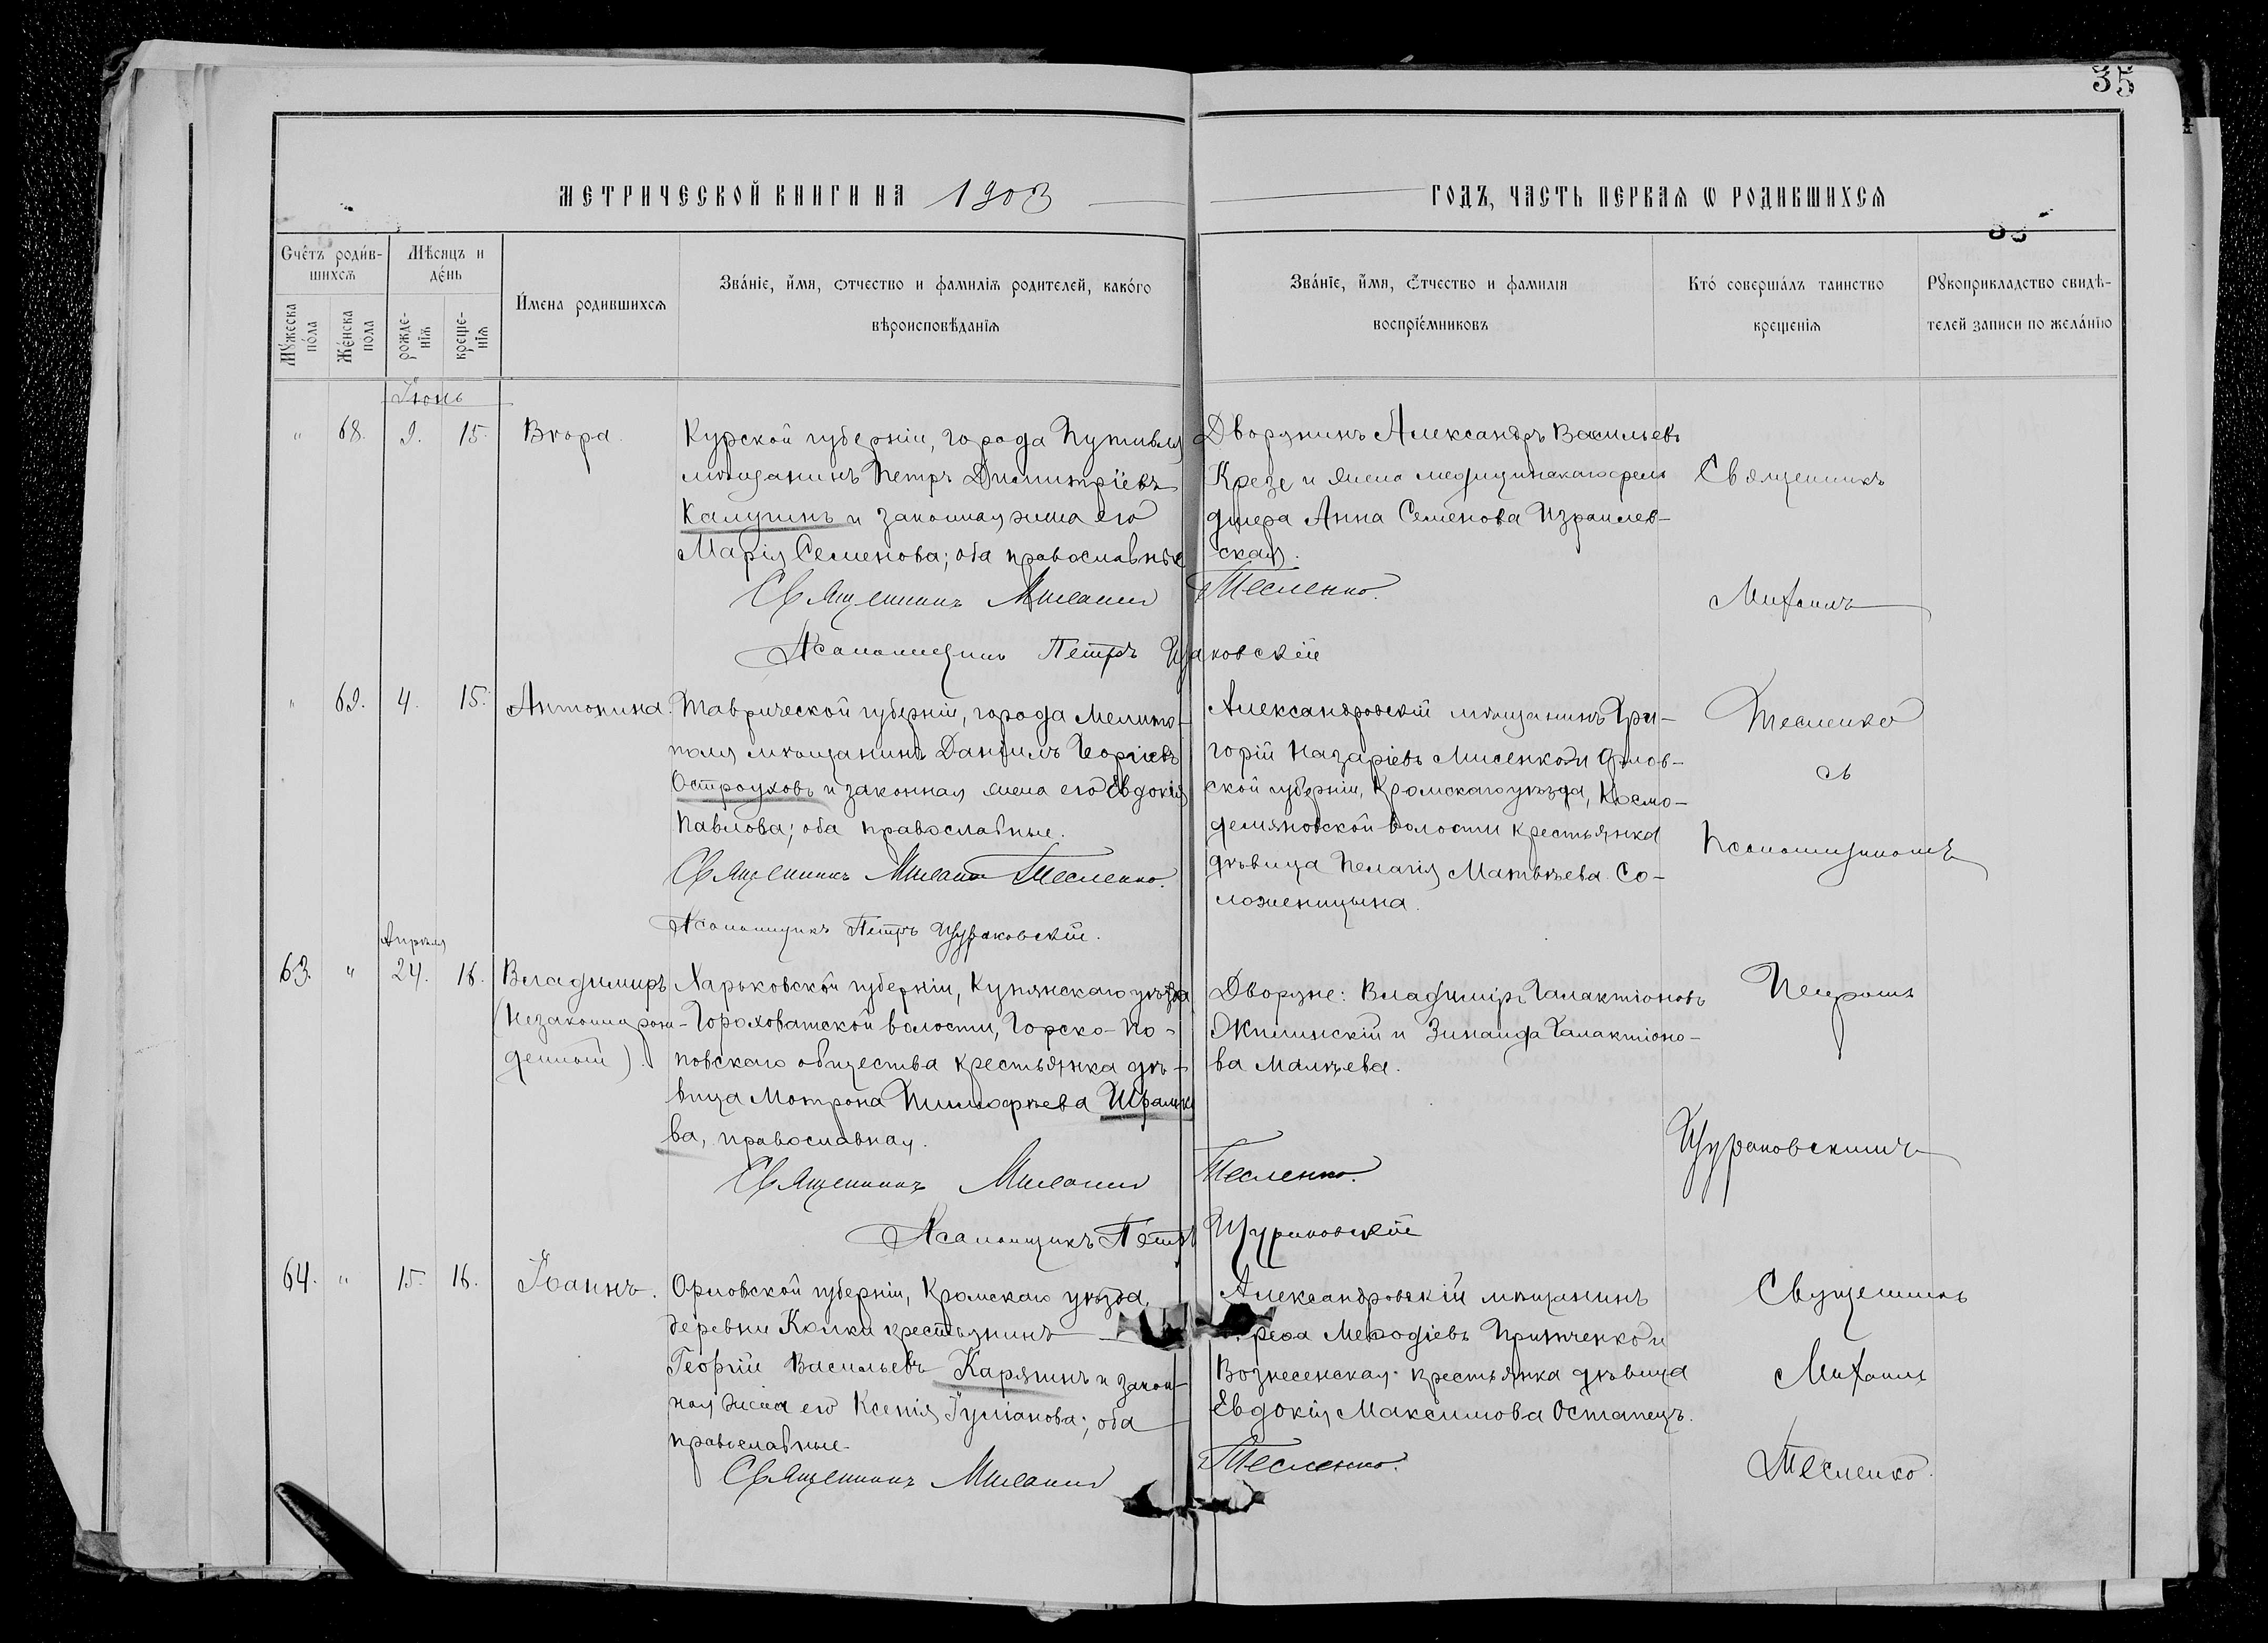 35
МЕТРИЧЕСКОЙ КНИГИ НА 1903 ГОДЪ, ЧАСТЬ ПЕРВАЯ Ѡ РОДИВШИХСЯ
Счётъ роди́в-
шихсѧ
Мѣсяцъ и
де́нь
Мꙋ́жеска по́ла
Же́нска пола
рожде-
нїѧ
креще-
нїѧ
И́мена родившихсѧ
Зва́нїе, и́мя, ѻтчество и фамилїѧ родителей, како́го
вѣроисповѣ́данїѧ
Зва́нїе, и́мя, ѻ́тчество и фамилїя
воспрїе́мниковъ
Кто́ соверша́лъ таинство
крещенїѧ
Рꙋкоприкладство свидѣ-
телей записи по жела́нїю
Іюнь
" 68. 9. 15. Вѣра.
Курской губерніи, города Путивля
мѣщанинъ Петръ Димитріевъ
Калугинъ и законная жена его
Марія Семенова; оба православные
Священникъ Михаилъ Тесленко.
Псаломщикъ Петръ Щураковскій
Дворянинъ Александръ Васильевъ
Крезе и жена медицинскаго фель
дшера Анна Семенова Израилев-
ская.
Священникъ
Михаилъ
Тесленко
съ
Псаломщикомъ
Петромъ
Щураковскимъ
" 69. 4. 15. Антонина.
Таврической губерніи, города Мелито-
поля мѣщанинъ Даніилъ Георгіевъ
Остроуховъ и законная жена его Евдокія
Павлова; оба православные.
Священникъ Михаилъ Тесленко.
Псаломщикъ Петръ Щураковскій.
Александровскій мѣщанинъ Гри-
горій Назаріевъ Мисенко и Орлов-
ской губерніи, Кромскаго уѣзда, Космо-
демяновской волости крестьянка
дѣвица Пелагія Матвѣева Со-
ложеницына.
Апрѣля
63. " 24. 16. Владимиръ
(Незаконнорож-
денный).
Харьковской губерніи, Купянскаго уѣзда
Гороховатской волости, Горско-По-
повскаго общества крестьянка дѣ-
вица Мотрона Тимофѣева
ва, православная.
Священникъ Михаилъ Тесленко.
Псаломщикъ Петръ Щураковскій
Дворяне: Владиміръ Галактіоновъ
и Зинаида Галактіоно-
ва Малѣева.
64. " 15. 16. Іоаннъ.
Орловской губерніи, Кромскаго уѣзда,
деревни Колки крестьянинъ
Георгій Васильевъ Карягинъ и закон-
ная жена его Ксенія Іуліанова; оба
православные.
Священникъ Михаилъ Тесленко.
Александровскій мѣщанинъ
Меѳодіевъ Притченко и
Вознесенская крестьянка дѣвица
Евдокія Максимова Остапецъ.
Священникъ
Михаилъ
Тесленко.